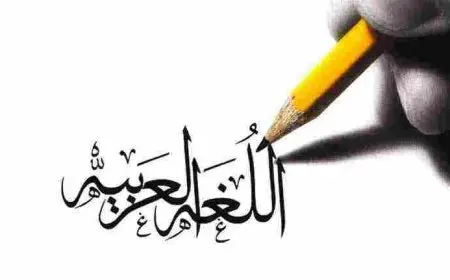 اللُغه العَربيه